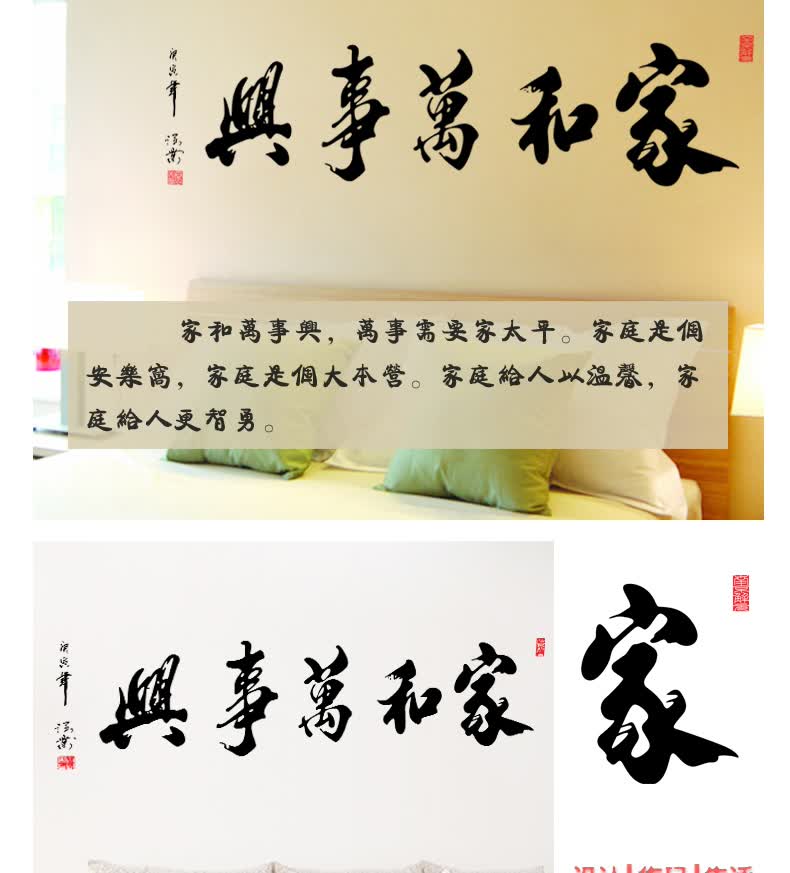 家和萬事興
庚寅年
家和萬事興，萬事需要家太平。家庭是個
安樂窩，家庭是個大本營。家庭給人以溫馨，家
庭給人更智勇。
家和萬事興
庚寅年
家